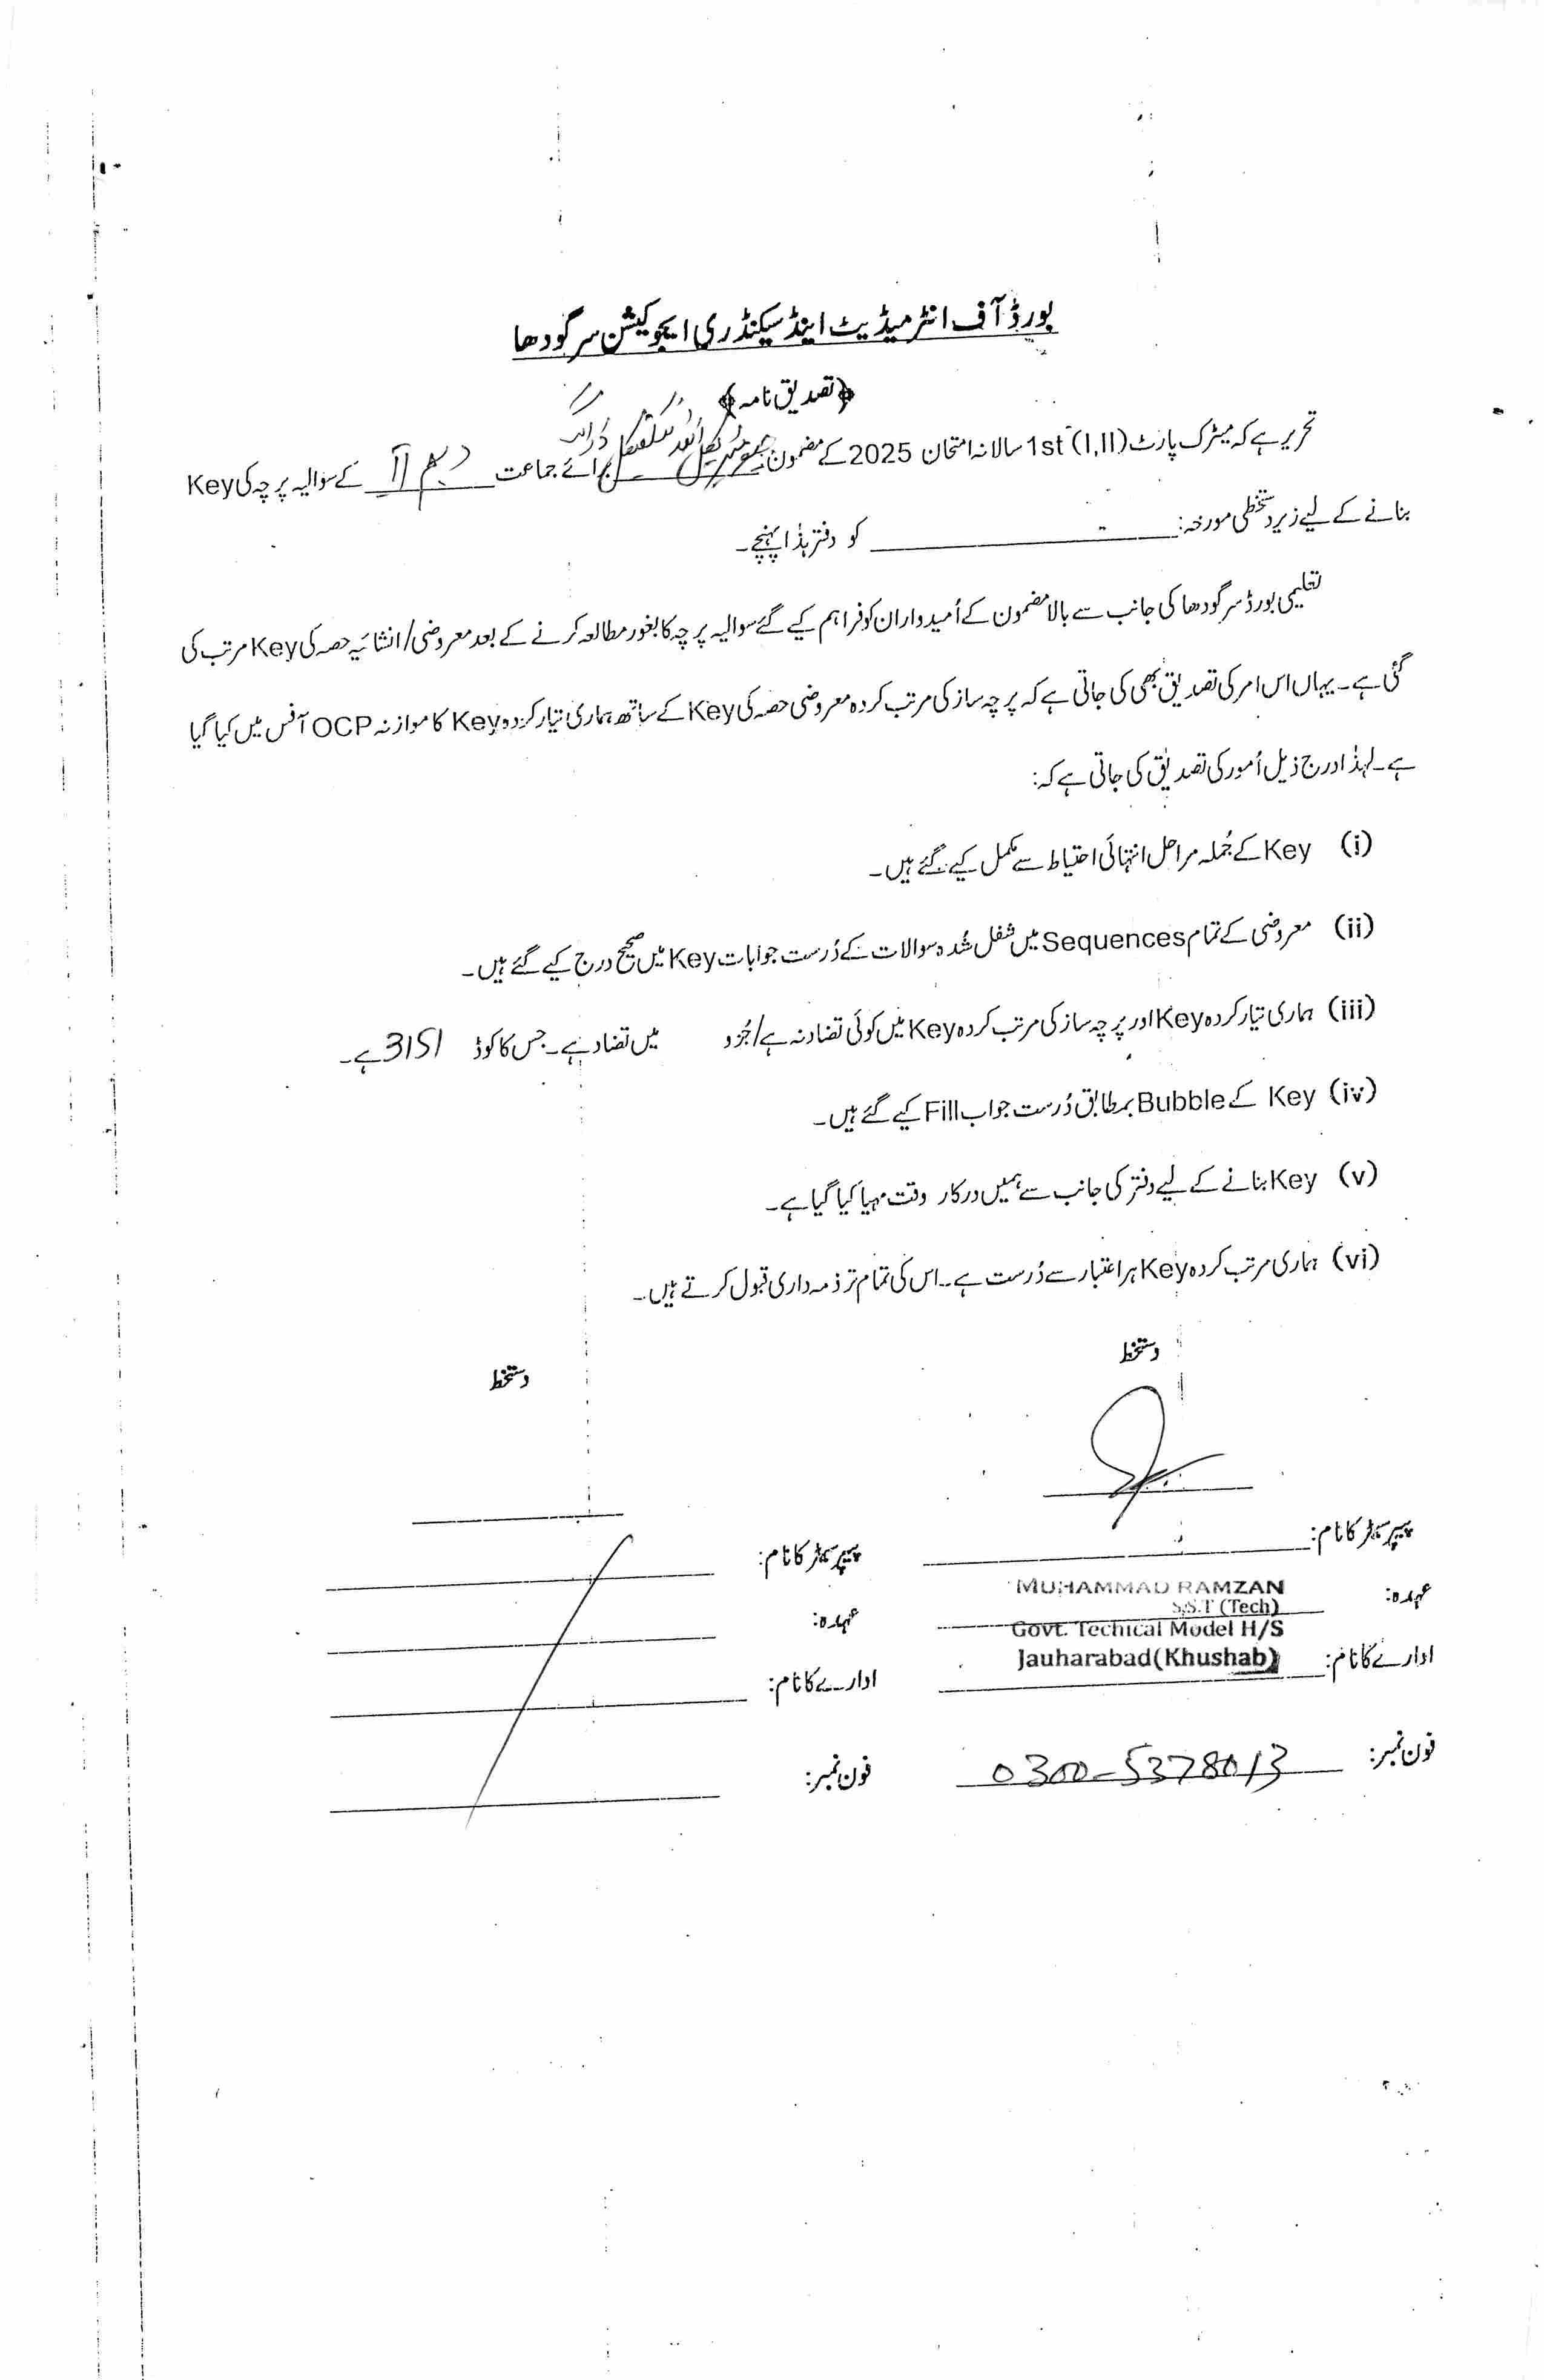 بورڈ آف انٹرمیڈیٹ اینڈ سیکنڈری ایجوکیشن سرگودھا
﴿تصدیق نامہ﴾
تحریر ہے کہ میٹرک پارٹ (I,II) 1st سالانہ امتحان 2025 کے مضمون جیومیٹریکل اینڈ ٹیکنیکل ڈرائنگ برائے جماعت دہم II کے سوالیہ پرچہ کی Key
بنانے کے لیے زیر دستخطی مورخہ: کو دفتر ہذا پہنچے۔
تعلیمی بورڈ سرگودھا کی جانب سے بالا مضمون کے اُمیدواران کو فراہم کیے گئے سوالیہ پرچہ کا بغور مطالعہ کرنے کے بعد معروضی/انشائیہ حصہ کی Key مرتب کی
گئی ہے۔ یہاں اس امر کی تصدیق بھی کی جاتی ہے کہ پرچہ ساز کی مرتب کردہ معروضی حصہ کی Key کے ساتھ ہماری تیار کردہ Key کا موازنہ OCP آفس میں کیا گیا
ہے۔ لہذٰا درج ذیل اُمور کی تصدیق کی جاتی ہے کہ:
(i) Key کے جُملہ مراحل انتہائی احتیاط سے مکمل کیے گئے ہیں۔
(ii) معروضی کے تمام Sequences میں شفل شُدہ سوالات کے دُرست جوابات Key میں صحیح درج کیے گئے ہیں۔
(iii) ہماری تیار کردہ Key اور پرچہ ساز کی مرتب کردہ Key میں کوئی تضاد نہ ہے/جُزو میں تضاد ہے۔ جس کا کوڈ 3151 ہے۔
(iv) Key کے Bubble بمطابق دُرست جواب Fill کیے گئے ہیں۔
(v) Key بنانے کے لیے دفتر کی جانب سے ہمیں درکار وقت مہیا کیا گیا ہے۔
(vi) ہماری مرتب کردہ Key ہر اعتبار سے دُرست ہے۔ اس کی تمام تر ذمہ داری قبول کرتے ہیں۔
دستخط
دستخط
پیپر سیٹر کا نام:
پیپر سیٹر کا نام:
MUHAMMAD RAMZAN
عہدہ:
S.S.T (Tech)
عہدہ:
Govt. Techical Model H/S
ادارے کا نام: Jauharabad(Khushab)
ادارے کا نام:
فون نمبر: 0300-5378013
فون نمبر: